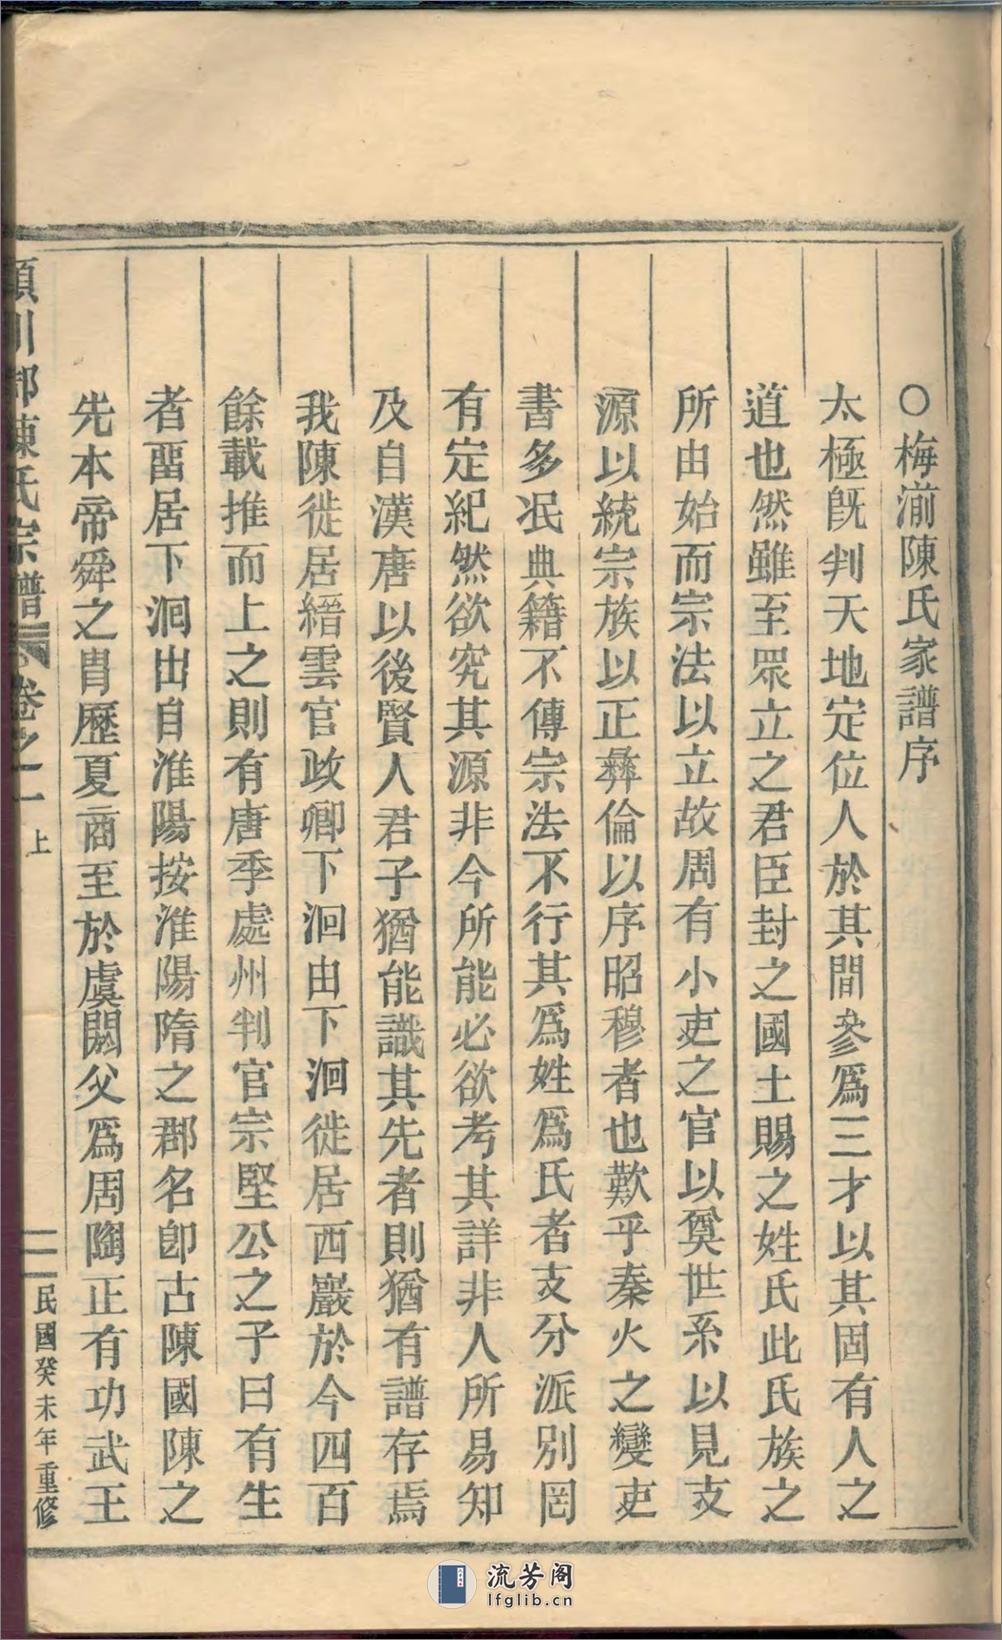 ○梅湔陳氏家譜序
太極旣判天地定位人於其間參爲三才以其固有人之
道也然雖至眾立之君臣封之國土賜之姓氏此氏族之
所由始而宗法以立故周有小吏之官以奠世系以見支
源以統宗族以正彝倫以序昭穆者也歎乎秦火之變吏
書多泯典籍不傳宗法不行其爲姓爲氏者支分派別罔
有定紀然欲究其源非今所能必欲考其詳非人所易知
及自漢唐以後賢人君子猶能識其先者則猶有譜存焉
我陳徙居縉雲官政卿下洄由下洄徙居西巖於今四百
餘載推而上之則有唐季處州判官宗堅公之子曰有生
者畱居下洄出自淮陽按淮陽隋之郡名卽古陳國陳之
先本帝舜之胄歷夏商至於虞閼父爲周陶正有功武王
潁川郡陳氏宗譜 卷之一 上 民國癸未年重修
流芳阁
lfglib.cn